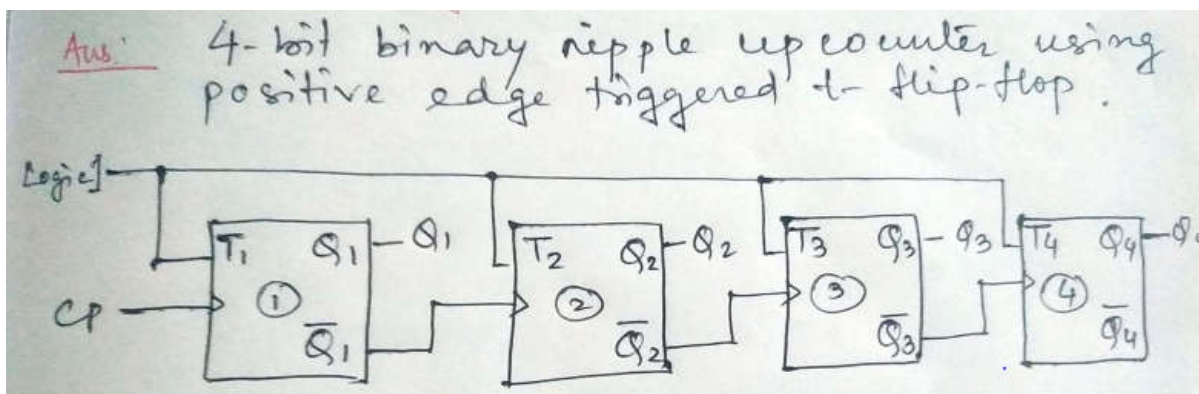 Ans:
4-bit binary ripple up counter using
positive edge triggered t- flip-flop.
Logic1
T₁ Q₁ Q₁
T₂ Q₂ Q₂
T₃ Q₃ Q₃
T₄ Q₄
CP
① Q̅₁
② Q̅₂
③ Q̅₃
④ Q̅₄